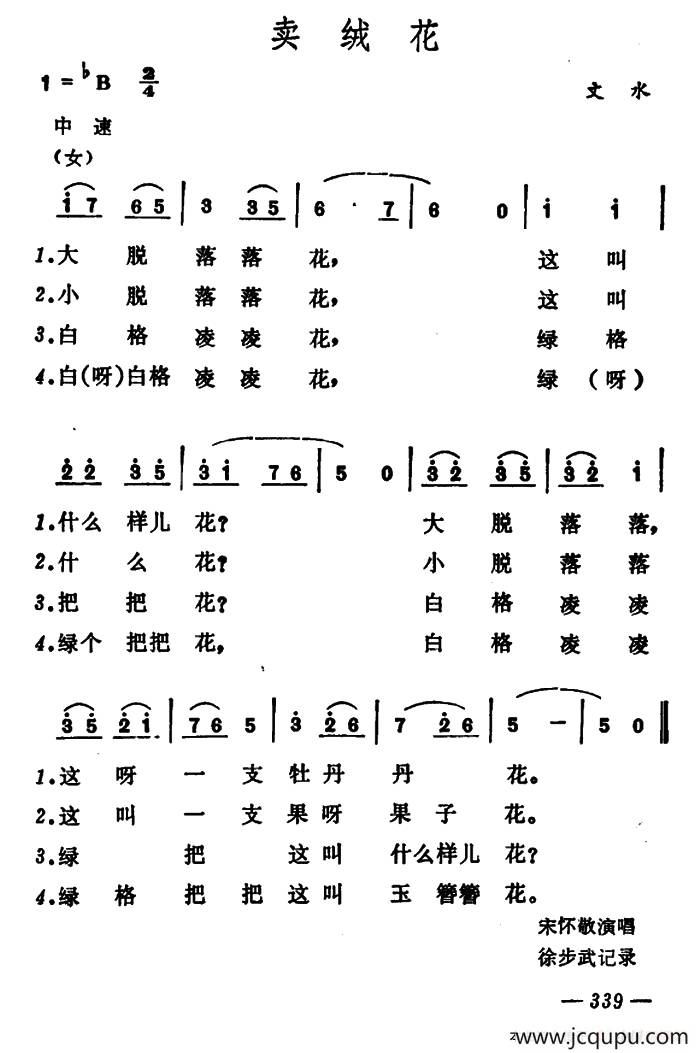 卖绒花
1=♭B 2/4
文水
中速
(女)
i7 65 | 3 35 | 6 · 7 | 6 0 | i i |
1.大 脱 落 落 花, 这 叫
2.小 脱 落 落 花, 这 叫
3.白 格 凌 凌 花, 绿 格
4.白(呀)白格 凌 凌 花, 绿 (呀)
22 35 | 3i 76 | 5 0 | 32 35 | 32 i |
1.什么 样儿 花? 大 脱 落 落,
2.什 么 花? 小 脱 落 落
3.把 把 花? 白 格 凌 凌
4.绿个 把把 花, 白 格 凌 凌
35 2i | 76 5 | 3 26 | 7 26 | 5 — | 5 0 ‖
1.这 呀 一 支 牡 丹 丹 花。
2.这 叫 一 支 果 呀 果 子 花。
3.绿 把 这叫 什么样儿 花?
4.绿 格 把 把 这叫 玉 簪簪 花。
宋怀敬演唱
徐步武记录
— 339 —
www.jcqupu.com